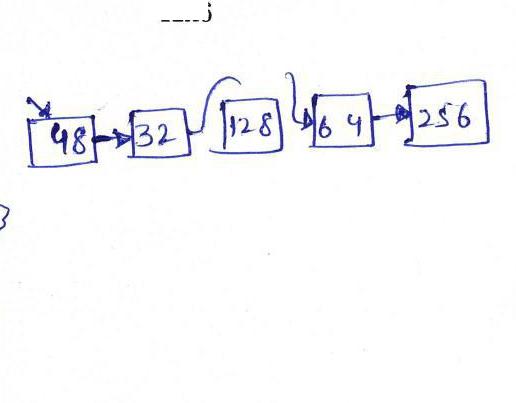 48 32 128 64 256